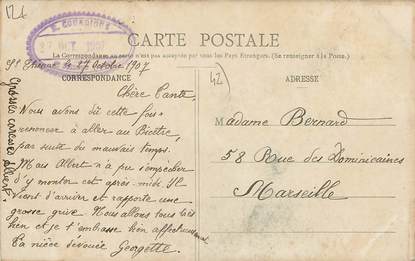 124
CARTE POSTALE
La Correspondance au recto n'est pas acceptée par tous les Pays Étrangers. (Se renseigner à la Poste.)
St Etienne le 27 Octobre 1907
CORRESPONDANCE
ADRESSE
42
Chère Tante
Nous avons dû cette fois
renoncer à aller au
par suite du mauvais temps.
Mais Albert n'a pu s'empêcher
d'y monter cet après-midi. Il
vient d'arriver et rapporte une
grosse grive. Nous allons tous très
bien et je t'embrasse bien affectueusement
Ta nièce dévouée Georgette.
Grosses caresses
Albert.
Madame Bernard
58 Rue des Dominicaines
Marseille